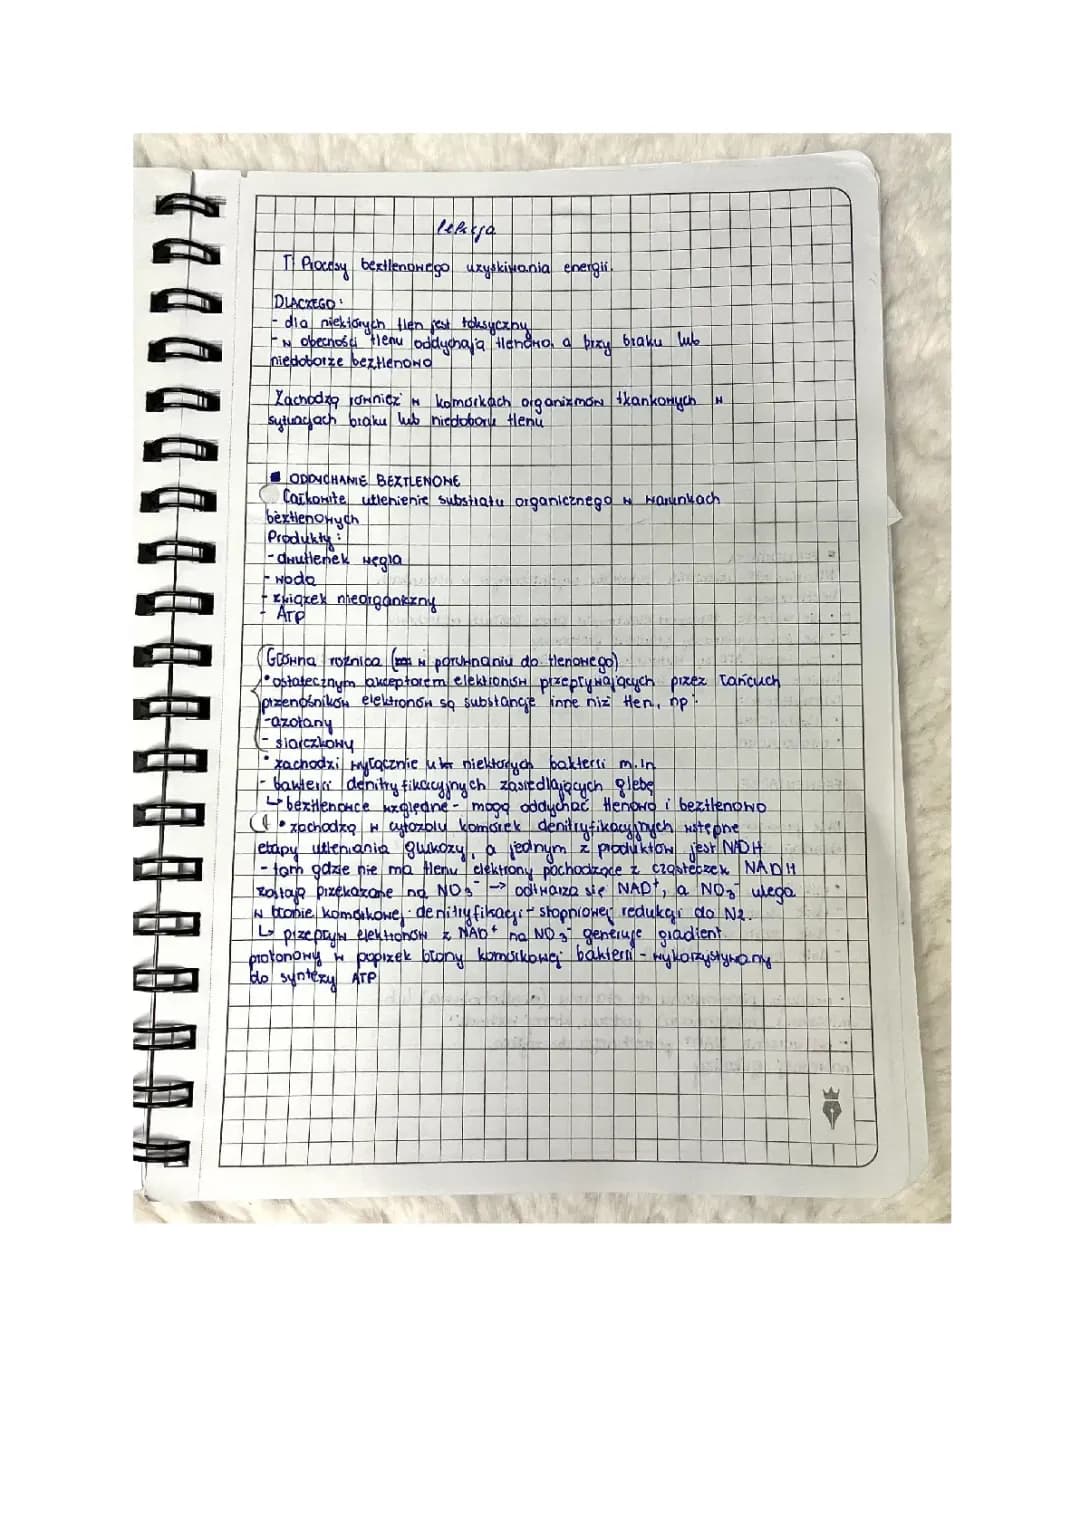 lekcja
T: Procesy beztlenowego uzyskiwania energii.
DLACZEGO:
- dla niektórych tlen jest toksyczny
- w obecności tlenu oddychają tlenowo, a przy braku lub
niedoborze beztlenowo
Zachodzą również w komórkach organizmów tkankowych w
sytuacjach braku lub niedoboru tlenu
ODDYCHANIE BEZTLENOWE
Całkowite utlenienie substratu organicznego w warunkach
beztlenowych
Produkty:
- dwutlenek węgla
- woda
- związek nieorganiczny
- ATP
Główna różnica (w porównaniu do tlenowego)
• ostatecznym akceptorem elektronów przepływających przez łańcuch
przenośników elektronów są substancje inne niż tlen, np:
- azotany
- siarczkowy
• zachodzi wyłącznie u niektórych bakterii m.in
- bakterii denitryfikacyjnych zasiedlających glebę
↳ beztlenowce względne - mogą oddychać tlenowo i beztlenowo
• zachodzą w cytozolu komórek denitryfikacyjnych wstępne
etapy utleniania glukozy, a jednym z produktów jest NADH
- tam gdzie nie ma tlenu elektrony pochodzące z cząsteczek NADH
zostają przekazane na NO₃⁻ → odtwarza się NAD⁺, a NO₃⁻ ulega
w błonie komórkowej denitryfikacji - stopniowej redukcji do N₂.
↳ przepływ elektronów z NAD⁺ na NO₃⁻ generuje gradient
protonowy w poprzek błony komórkowej bakterii - wykorzystywany
do syntezy ATP